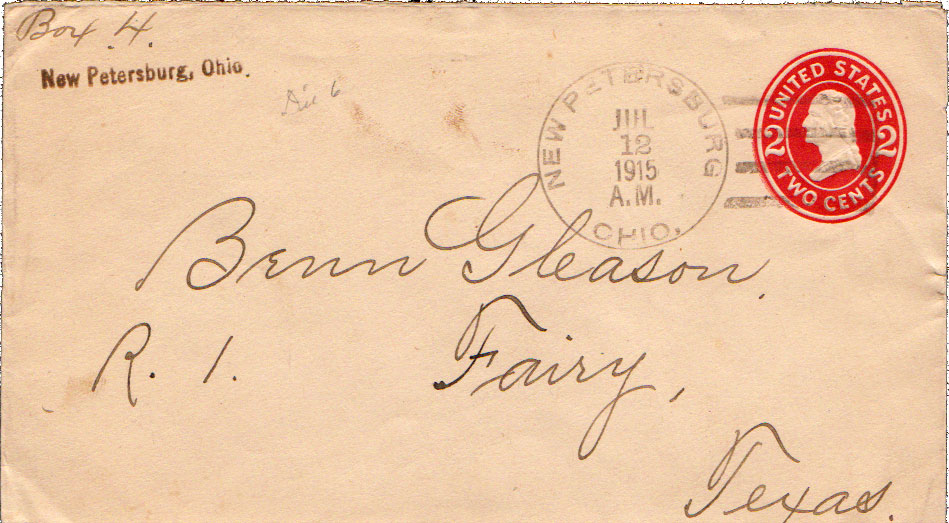 Box 4.
New Petersburg, Ohio.
Die 6
NEW PETERSBURG
JUL
12
1915
A.M.
OHIO.
UNITED STATES
2 2
TWO CENTS
Benn Gleason,
R. 1. Fairy,
Texas.